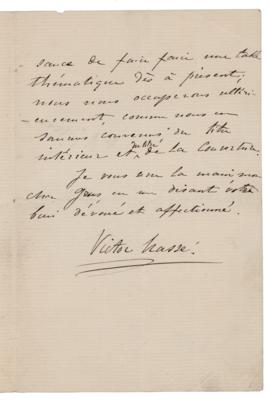 sance de faire faire une table
thématique dès à présent;
nous nous occuperons ultéri-
eurement, comme nous en
sommes convenus du titre
intérieur et du titre de la Couverture.
Je vous serre la main mon
cher Gens en me disant votre
bien dévoué et affectionné.
Victor Massé.